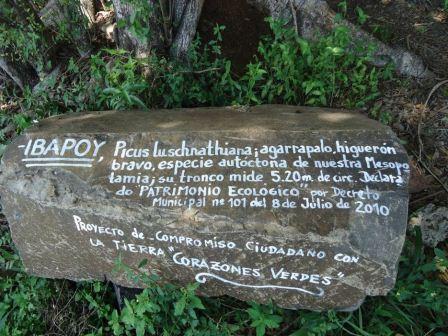 -IBAPOY, Picus luschnathiana; agarrapalo, higuerón
bravo, especie autóctona de nuestra Mesopo
tamia; su tronco mide 5.20m. de circ. Declara
do "PATRIMONIO ECOLÓGICO" por Decreto
Municipal nº 101 del 8 de Julio de 2010
PROYECTO DE COMPROMISO CIUDADANO CON
LA TIERRA "CORAZONES VERDES"